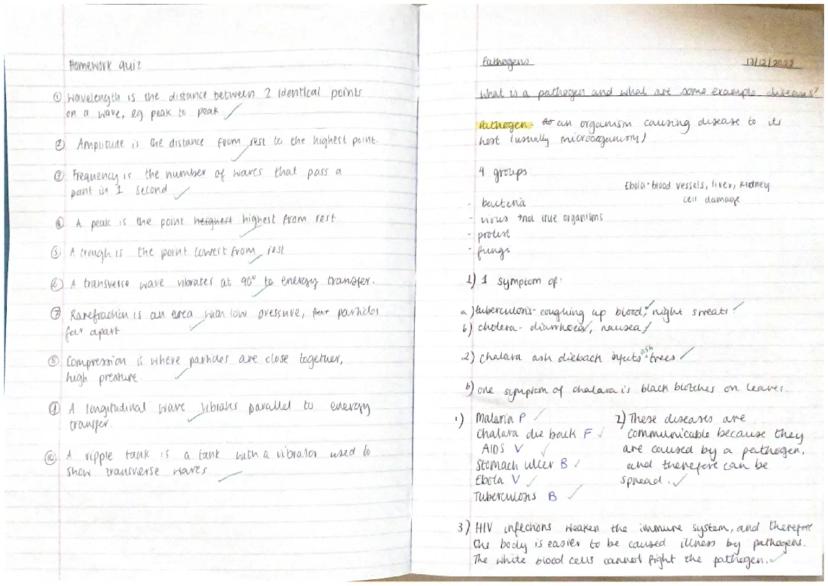 Homework quiz
① Wavelength is the distance between 2 identical points
on a wave, eg peak to peak
② Amplitude is the distance from rest to the highest point.
③ Frequency is the number of waves that pass a
point in 1 second
④ A peak is the point highest from rest
⑤ A trough is the point lowest from rest
⑥ A transverse wave vibrates at 90° to energy transfer.
⑦ Rarefraction is an area with low pressure, particles
far apart
⑧ Compression is where particles are close together,
high pressure.
⑨ A longitudinal wave vibrates parallel to energy
transfer.
⑩ A ripple tank is a tank with a vibrator used to
show transverse waves
Pathogens
What is a pathogen and what are some example diseases?
Pathogen - an organism causing disease to its
host (usually microorganisms)
4 groups
Ebola - blood vessels, liver, kidney
cell damage
- bacteria
- virus *not true organisms
- protist
- fungs
1) 1 symptom of:
a) tuberculorsis - coughing up blood, night sweats
b) cholera - diarrhoea, nausea
2) chalara ash dieback infects ash trees
b) one symptom of chalara is black blotches on leaves.
1) Malaria P
Chalara die back F
AIDS V
Stomach ulcer B
Ebola V
Tuberculorsis B
2) These diseases are
communicable because they
are caused by a pathogen,
and therefore can be
spread.
3) HIV infections weaken the immune system, and therefore
the body is easier to be caused illness by pathogens.
The white blood cells cannot fight the pathogen.